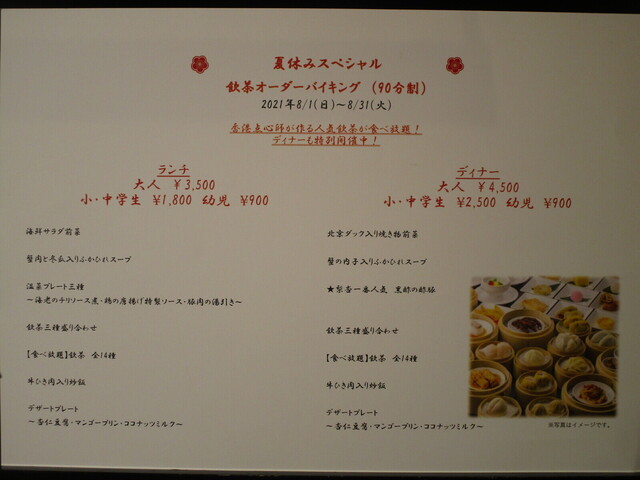 夏休みスペシャル
飲茶オーダーバイキング (90分制)
2021年8/1(日)～8/31(火)
香港点心師が作る人気飲茶が食べ放題！
ディナーも特別開催中！
ランチ
大人 ￥3,500
小・中学生 ￥1,800 幼児 ￥900
海鮮サラダ前菜
蟹肉と冬瓜入りふかひれスープ
温菜プレート三種
～海老のチリソース煮・鶏の唐揚げ特製ソース・豚肉の湯引き～
飲茶三種盛り合わせ
【食べ放題】飲茶 全14種
牛ひき肉入り炒飯
デザートプレート
～杏仁豆腐・マンゴープリン・ココナッツミルク～
ディナー
大人 ￥4,500
小・中学生 ￥2,500 幼児 ￥900
北京ダック入り焼き物前菜
蟹の内子入りふかひれスープ
★梨杏一番人気 黒酢の酢豚
飲茶三種盛り合わせ
【食べ放題】飲茶 全14種
牛ひき肉入り炒飯
デザートプレート
～杏仁豆腐・マンゴープリン・ココナッツミルク～
※写真はイメージです。